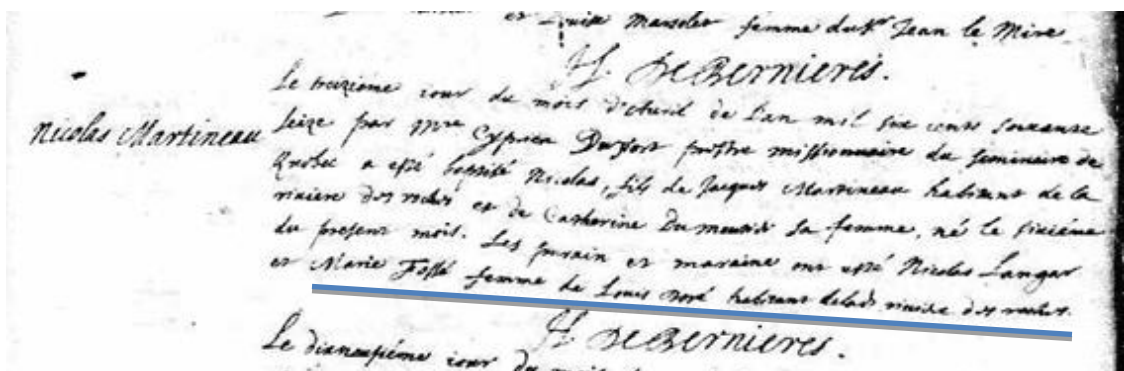 et Louise Marsolet femme du Sr Jean le Mire
H. DeBernieres.
Nicolas Martineau
Le treizieme jour du mois d'Auril de l'an mil six cents soixante
seize par Mre Cyprien Dufort prestre missionnaire du seminaire de
Quebec a esté baptisé Nicolas, fils de Jacques Martineau habitant de la
riuiere des roches et de Catherine Dumoutié sa femme, né le sixiéme
du present mois. Les parain et maraine ont esté Nicolas Langar
et Marie Fossé femme de Louis Doré habitant de lad. riuiere des roches.
H. DeBernieres.
Le dixneufiéme jour du mois